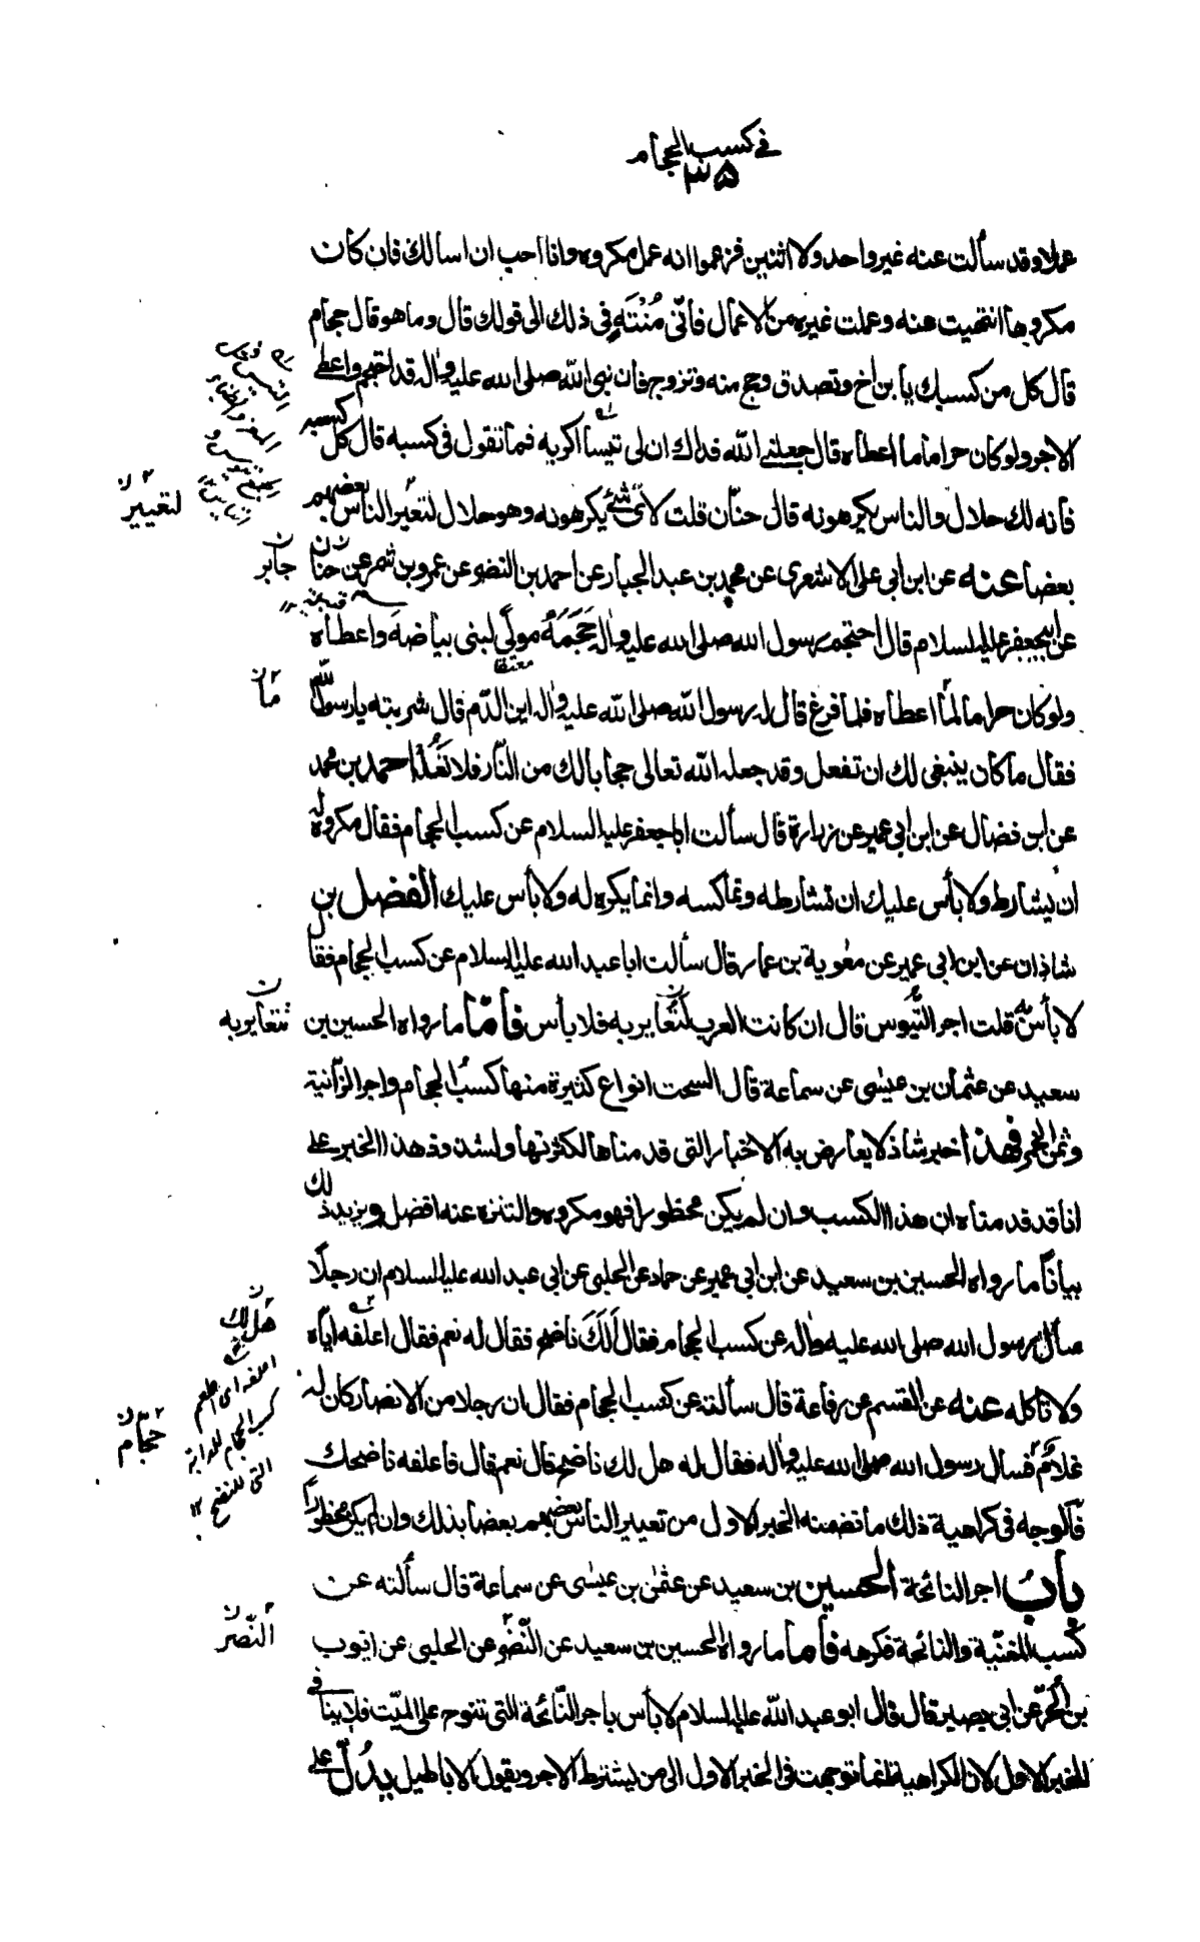 في كسب الحجام
٣٥
عملا وقد سألت عنه غير واحد ولا اثنين فزعموا انه عمل مكروه وانا احب ان اسالك فان كان
مكروها انتهيت عنه وعملت غيره من الاعمال فانّي مُنْتَهٍ في ذلك الى قولك قال وما هو قال حجام
قال كل من كسبك يا بن اخ وتصدق وحج منه وتزوج فان نبي الله صلى الله عليه واله قد احتجم واعطى
الاجر ولو كان حراما ما اعطاه قال جعلني الله فداك ان لي تيسا اكريه فما تقول في كسبه قال كل كسبه
فانه لك حلال والناس يكرهونه قال حنّان قلت لاىّ شئ يكرهونه وهو حلال لتعيّر الناس بعضهم
لتغيير
بعضا عنه عن ابن ابي علي الاشعري عن محمد بن عبد الجبار عن احمد بن النضر عن عمرو بن شمر عن حنان
جابر
عن ابيجعفر عليه السلام قال احتجم رسول الله صلى الله عليه واله حَجَمَهُ مولًى لبنى بياضة واعطاه
معتقا
ولو كان حراما لما اعطاه فلما فرغ قال له رسول الله صلى الله عليه واله اين الدّم قال شربته يا رسول الله
ما
فقال ما كان ينبغى لك ان تفعل وقد جعله الله تعالى حجابا لك من النّار فلا تَعُد احمد بن محمد
عن ابن فضال عن ابن ابي عمير عن زرارة قال سألت ابا جعفر عليه السلام عن كسب الحجام فقال مكروه له
ان يشارط ولا بأس عليك ان تشارطه وتماكسه وانما يكره له ولا بأس عليك الفضل بن
شاذان عن ابن ابي عمير عن معوية بن عمار قال سألت ابا عبد الله عليه السلام عن كسب الحجام فقال
لا بأس به قلت اجر التّيوس قال ان كانت العرب لَتُعاير به فلا بأس فأمّا ما رواه الحسين بن
تتعاير به
سعيد عن عثمان بن عيسى عن سماعة قال السحت انواع كثيرة منها كسب الحجام واجر الزّانية
وثمن الخمر فهذا خبر شاذ لا يعارض به الاخبار التى قدمناها لكثرتها ولشذوذ هذا الخبر على
انا قد قدمناه ان هذا الكسب وان لم يكن محظورا فهو مكروه والتنزه عنه افضل ويزيد ذلك
بيانًا ما رواه الحسين بن سعيد عن ابن ابي عمير عن حماد عن الحلبي عن ابي عبد الله عليه السلام ان رجلًا
سأل رسول الله صلى الله عليه واله عن كسب الحجام فقال أَلَكَ ناضح فقال له نعم فقال اعلفه ايّاه
هل لك
ولا تأكله عنه عن القسم عن رفاعة قال سألته عن كسب الحجام فقال ان رجلا من الانصار كان له
اعلفه اى اطعم
كسب الحجام للدابة
التى للنضح ١٢
غلامٌ فسأل رسول الله صلى الله عليه واله فقال له هل لك ناضح قال نعم قال فاعلفه ناضحك
حجام
فالوجه في كراهية ذلك ما تضمنه الخبر الاول من تعيير الناس بعضهم بعضا بذلك وان لم يكن محظورا
بابُ اجر النائحة الحسين بن سعيد عن عثمن بن عيسى عن سماعة قال سألته عن
كسب المغنّية والنائحة فكرهه فأما ما رواه الحسين بن سعيد عن النّضر عن الحلبي عن ايّوب
النّضر
بن الحرّ عن ابي بصير قال قال ابو عبد الله عليه السلام لا بأس باجر النّائحة التى تنوح على الميّت فلا ينافي
للخبر الاول لان الكراهية انما توجهت في الخبر الاول الى من يشترط الاجر ويقول الاباطيل يدُلّ على